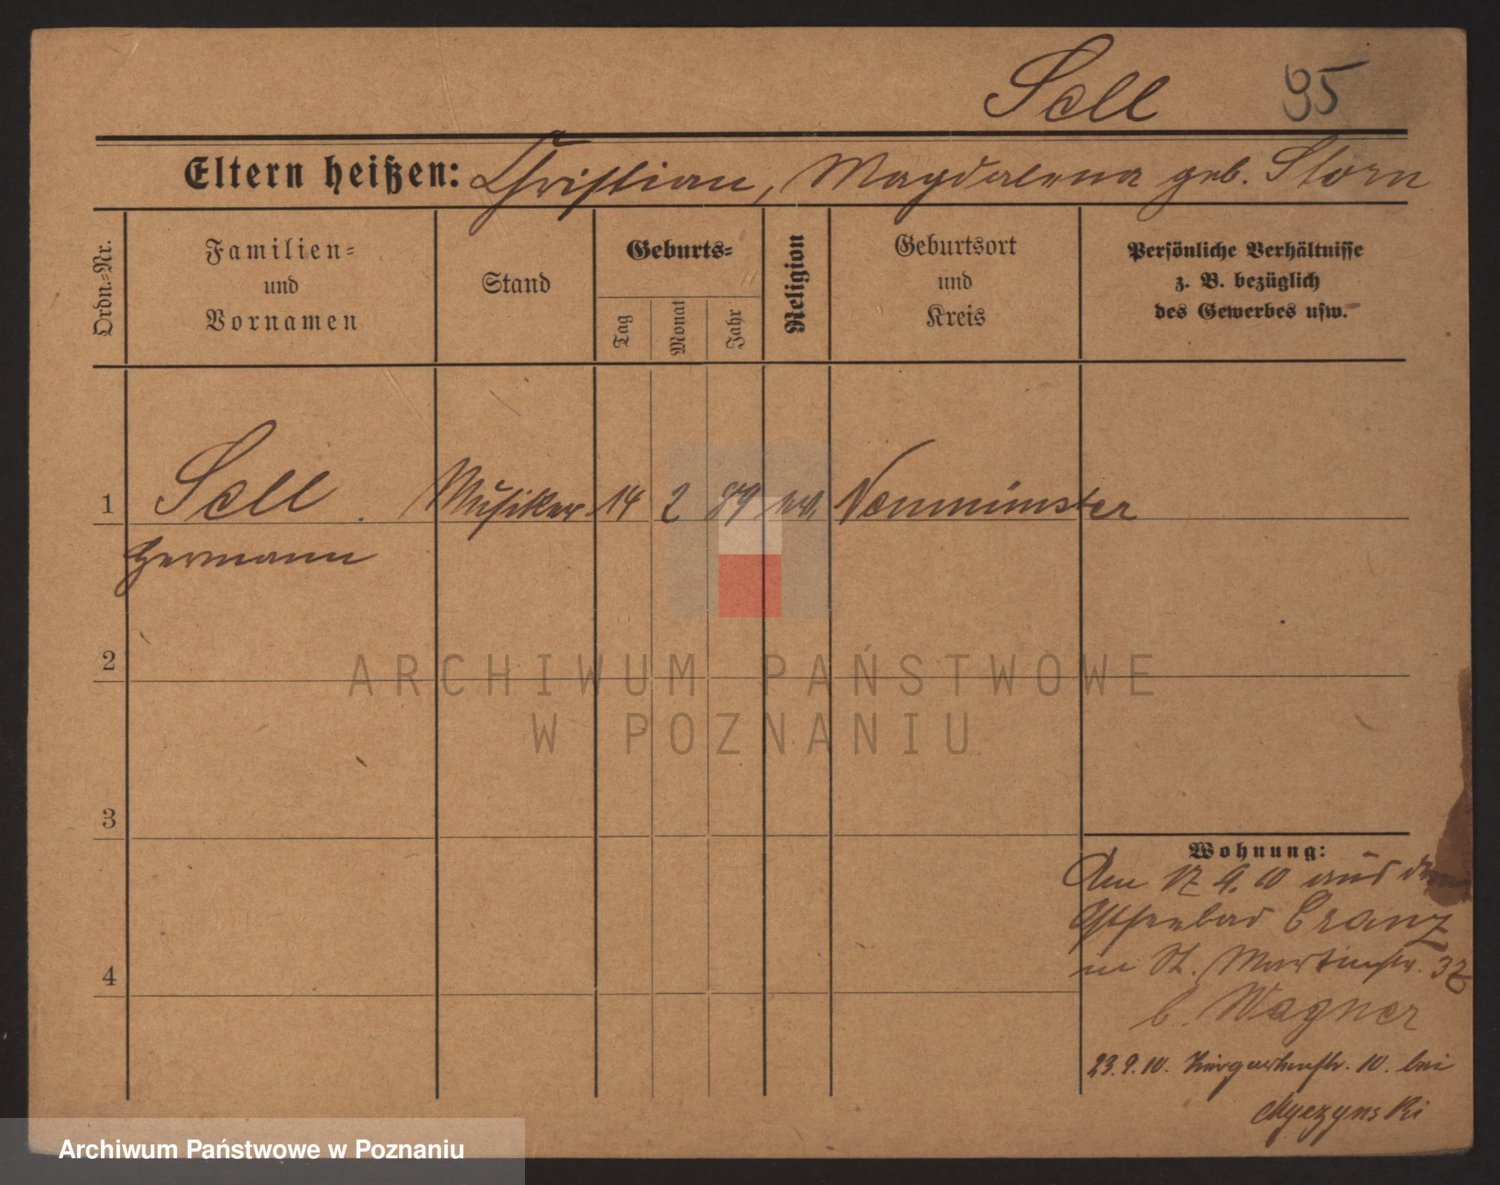 Sell 95
Eltern heißen: Christian, Magdalena geb. Storn
Ordn.-Nr.
Familien-
und
Vornamen
Stand
Geburts-
Tag
Monat
Jahr
Religion
Geburtsort
und
Kreis
Persönliche Verhältnisse
z. B. bezüglich
des Gewerbes usw.
1 Sell Musiker 14 2 89 Neumünster
Hermann
2
3
4
Wohnung:
Am 17 9. 10 aus dem
Ostseebad Cranz
in St. Martinstr. 37
b. Wagner
23. 9. 10. 10. bei
ARCHIWUM PAŃSTWOWE
W POZNANIU
Archiwum Państwowe w Poznaniu